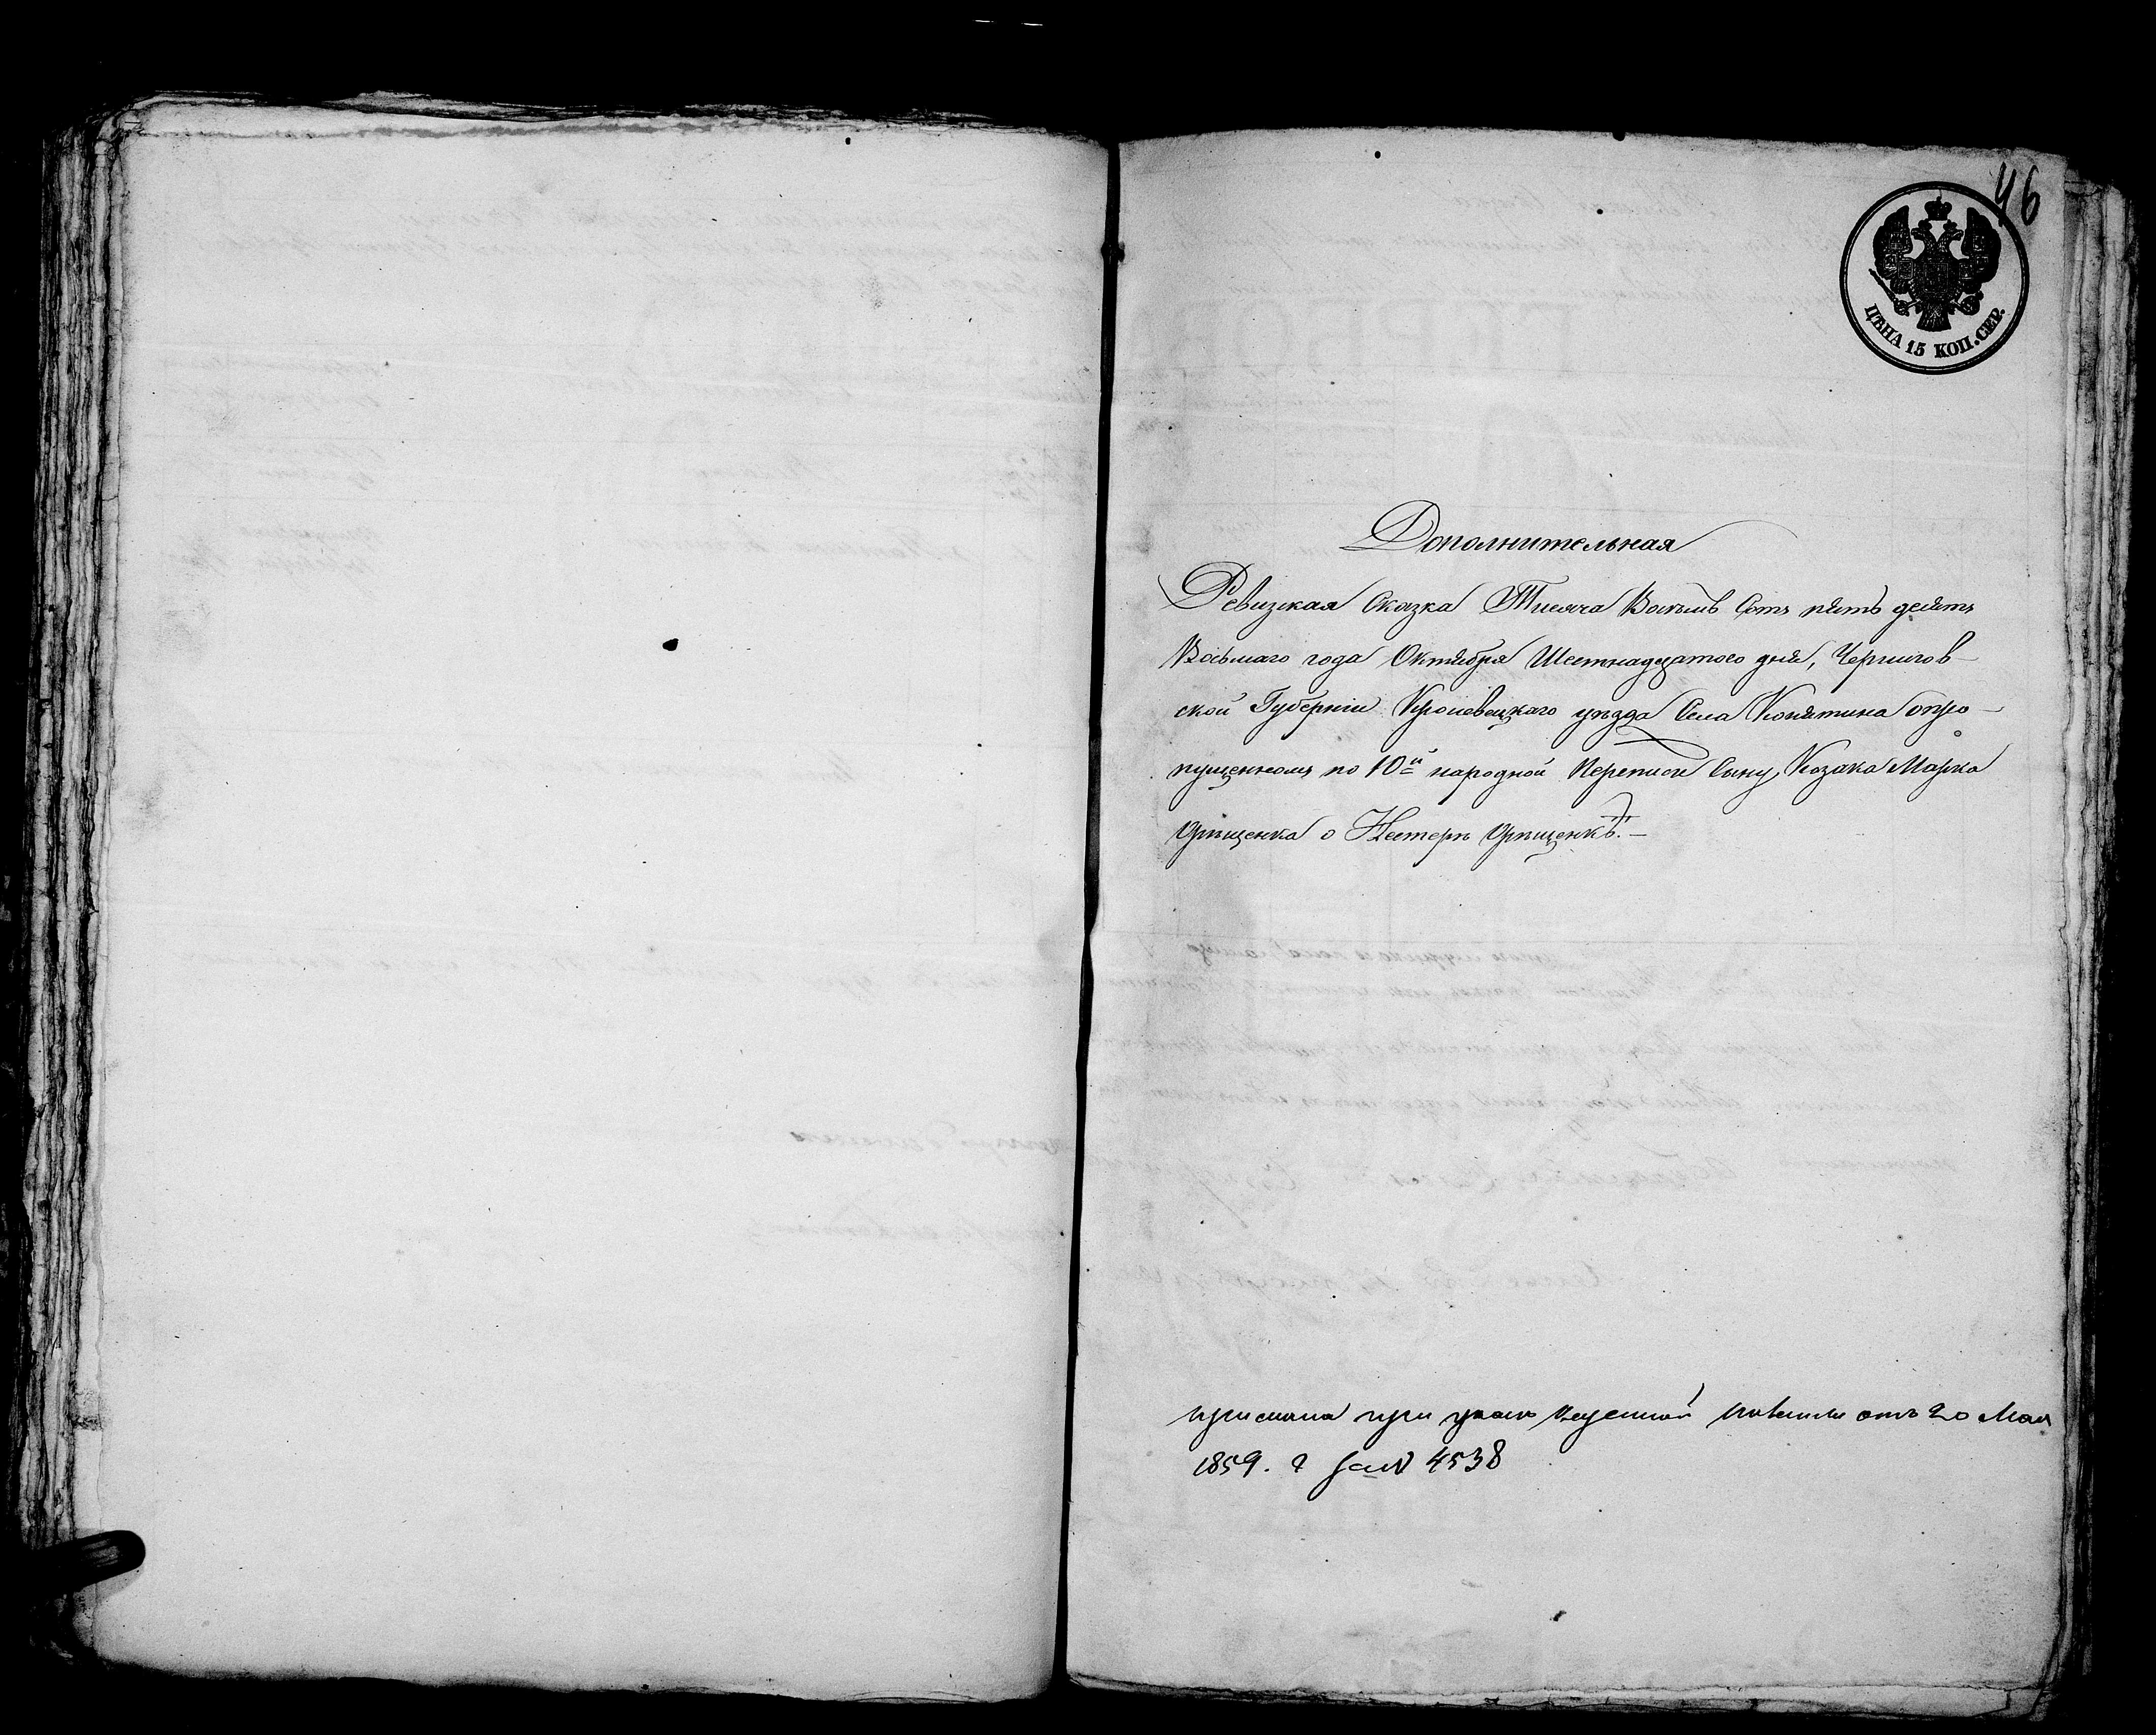 46
ЦѢНА 15 КОП. СЕР.
Дополнительная
Ревизская Сказка Тисяча Восѣмь Сотъ пять десятъ
Восьмаго года Октября Шестнадцатого дня, Чернигов-
ской Губерніи Кролевецкаго уѣзда Села Конятина опро-
пущенномъ по 10й народной Переписи Сыну Козака Марка
о Нестерѣ
прислана при указѣ Казенной Палаты отъ 20 Мая
1859. г за № 4538